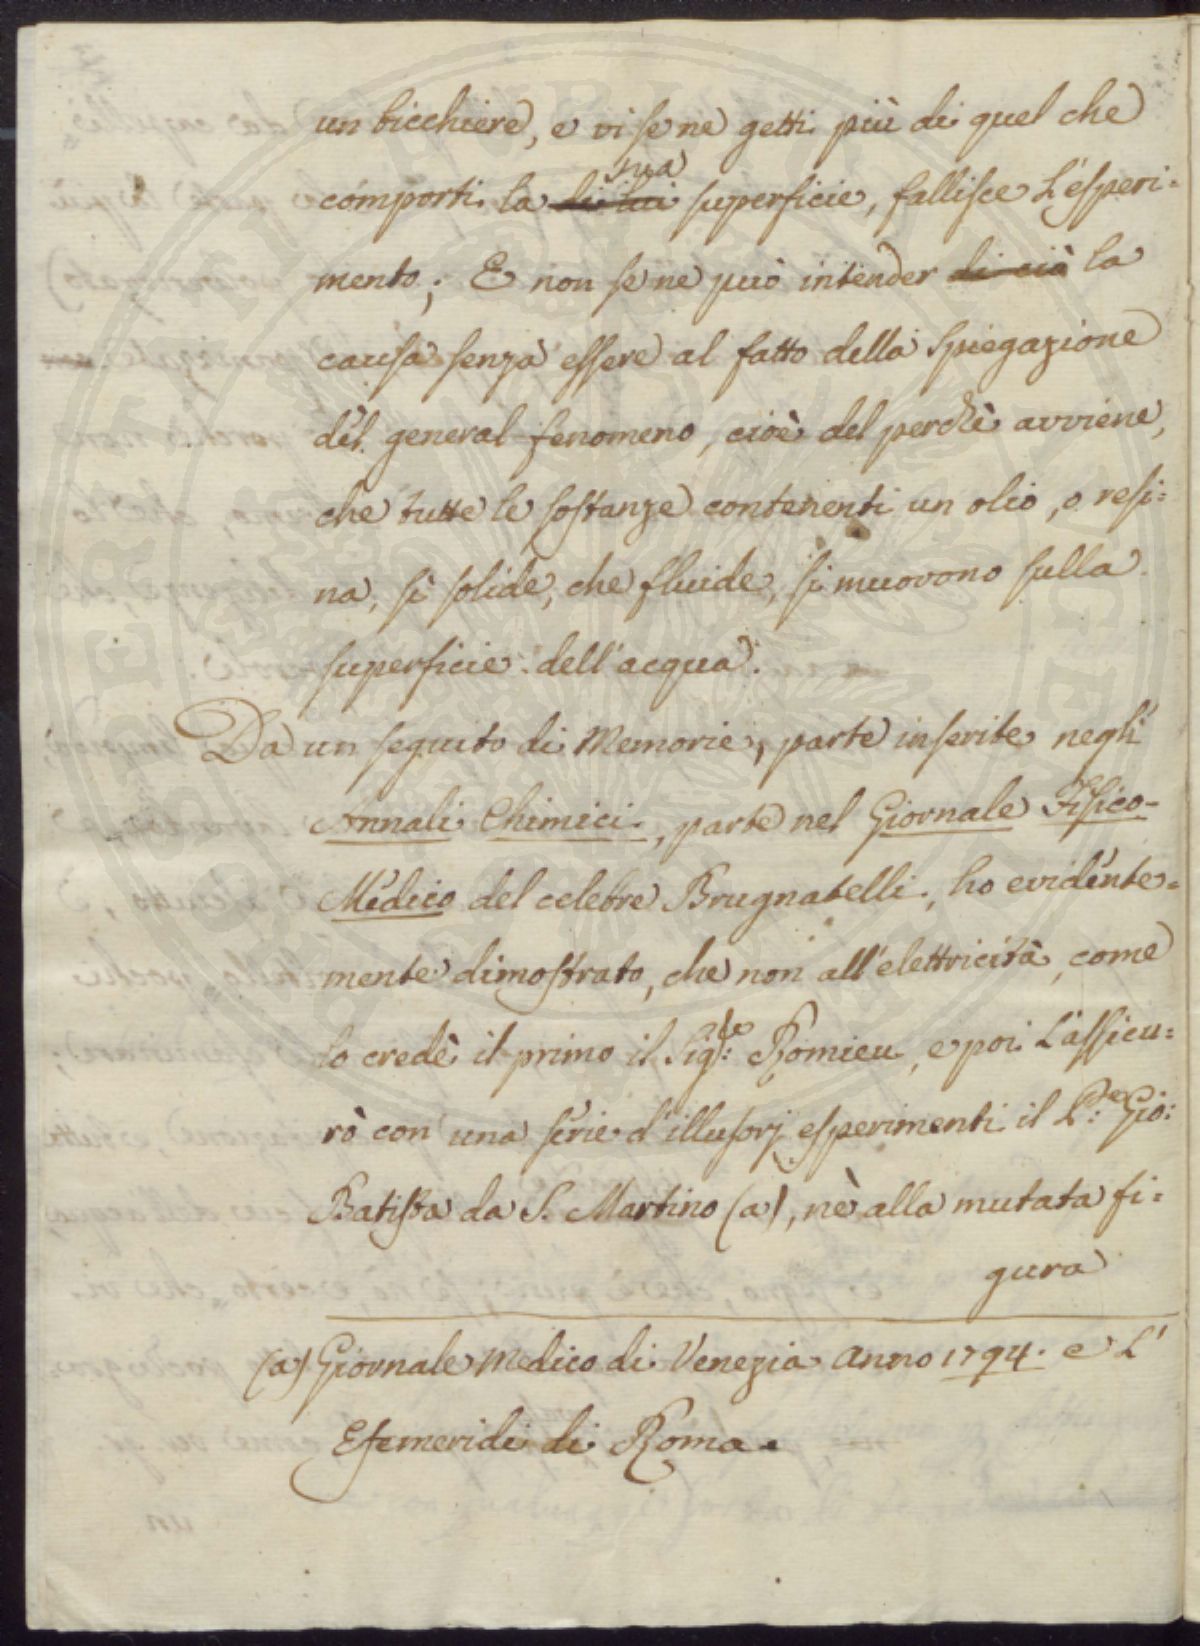 un bicchiere, e vi se ne getti più di quel che
comporti la di lui sua superficie, fallisce l'esperi=
mento; E non se ne può intender di ciò la
causa senza essere al fatto della spiegazione
del general fenomeno, cioè del perchè avviene,
che tutte le sostanze contenenti un olio, o resi=
na, sì solide, che fluide, si muovono sulla
superficie dell'acqua.
Da un seguito di Memorie, parte inserite negli
Annali Chimici, parte nel Giornale Fisico-
Medico del celebre Brugnatelli, ho evidente=
mente dimostrato, che non all'elettricità, come
lo credè il primo il Sig:re Romieu, e poi l'assicu=
rò con una serie d'illusorj esperimenti il P:re Gio:
Batista da S. Martino (a), nè alla mutata fi=
gura
(a) Giornale Medico di Venezia anno 1794. e L'
Efemeridi di Roma.